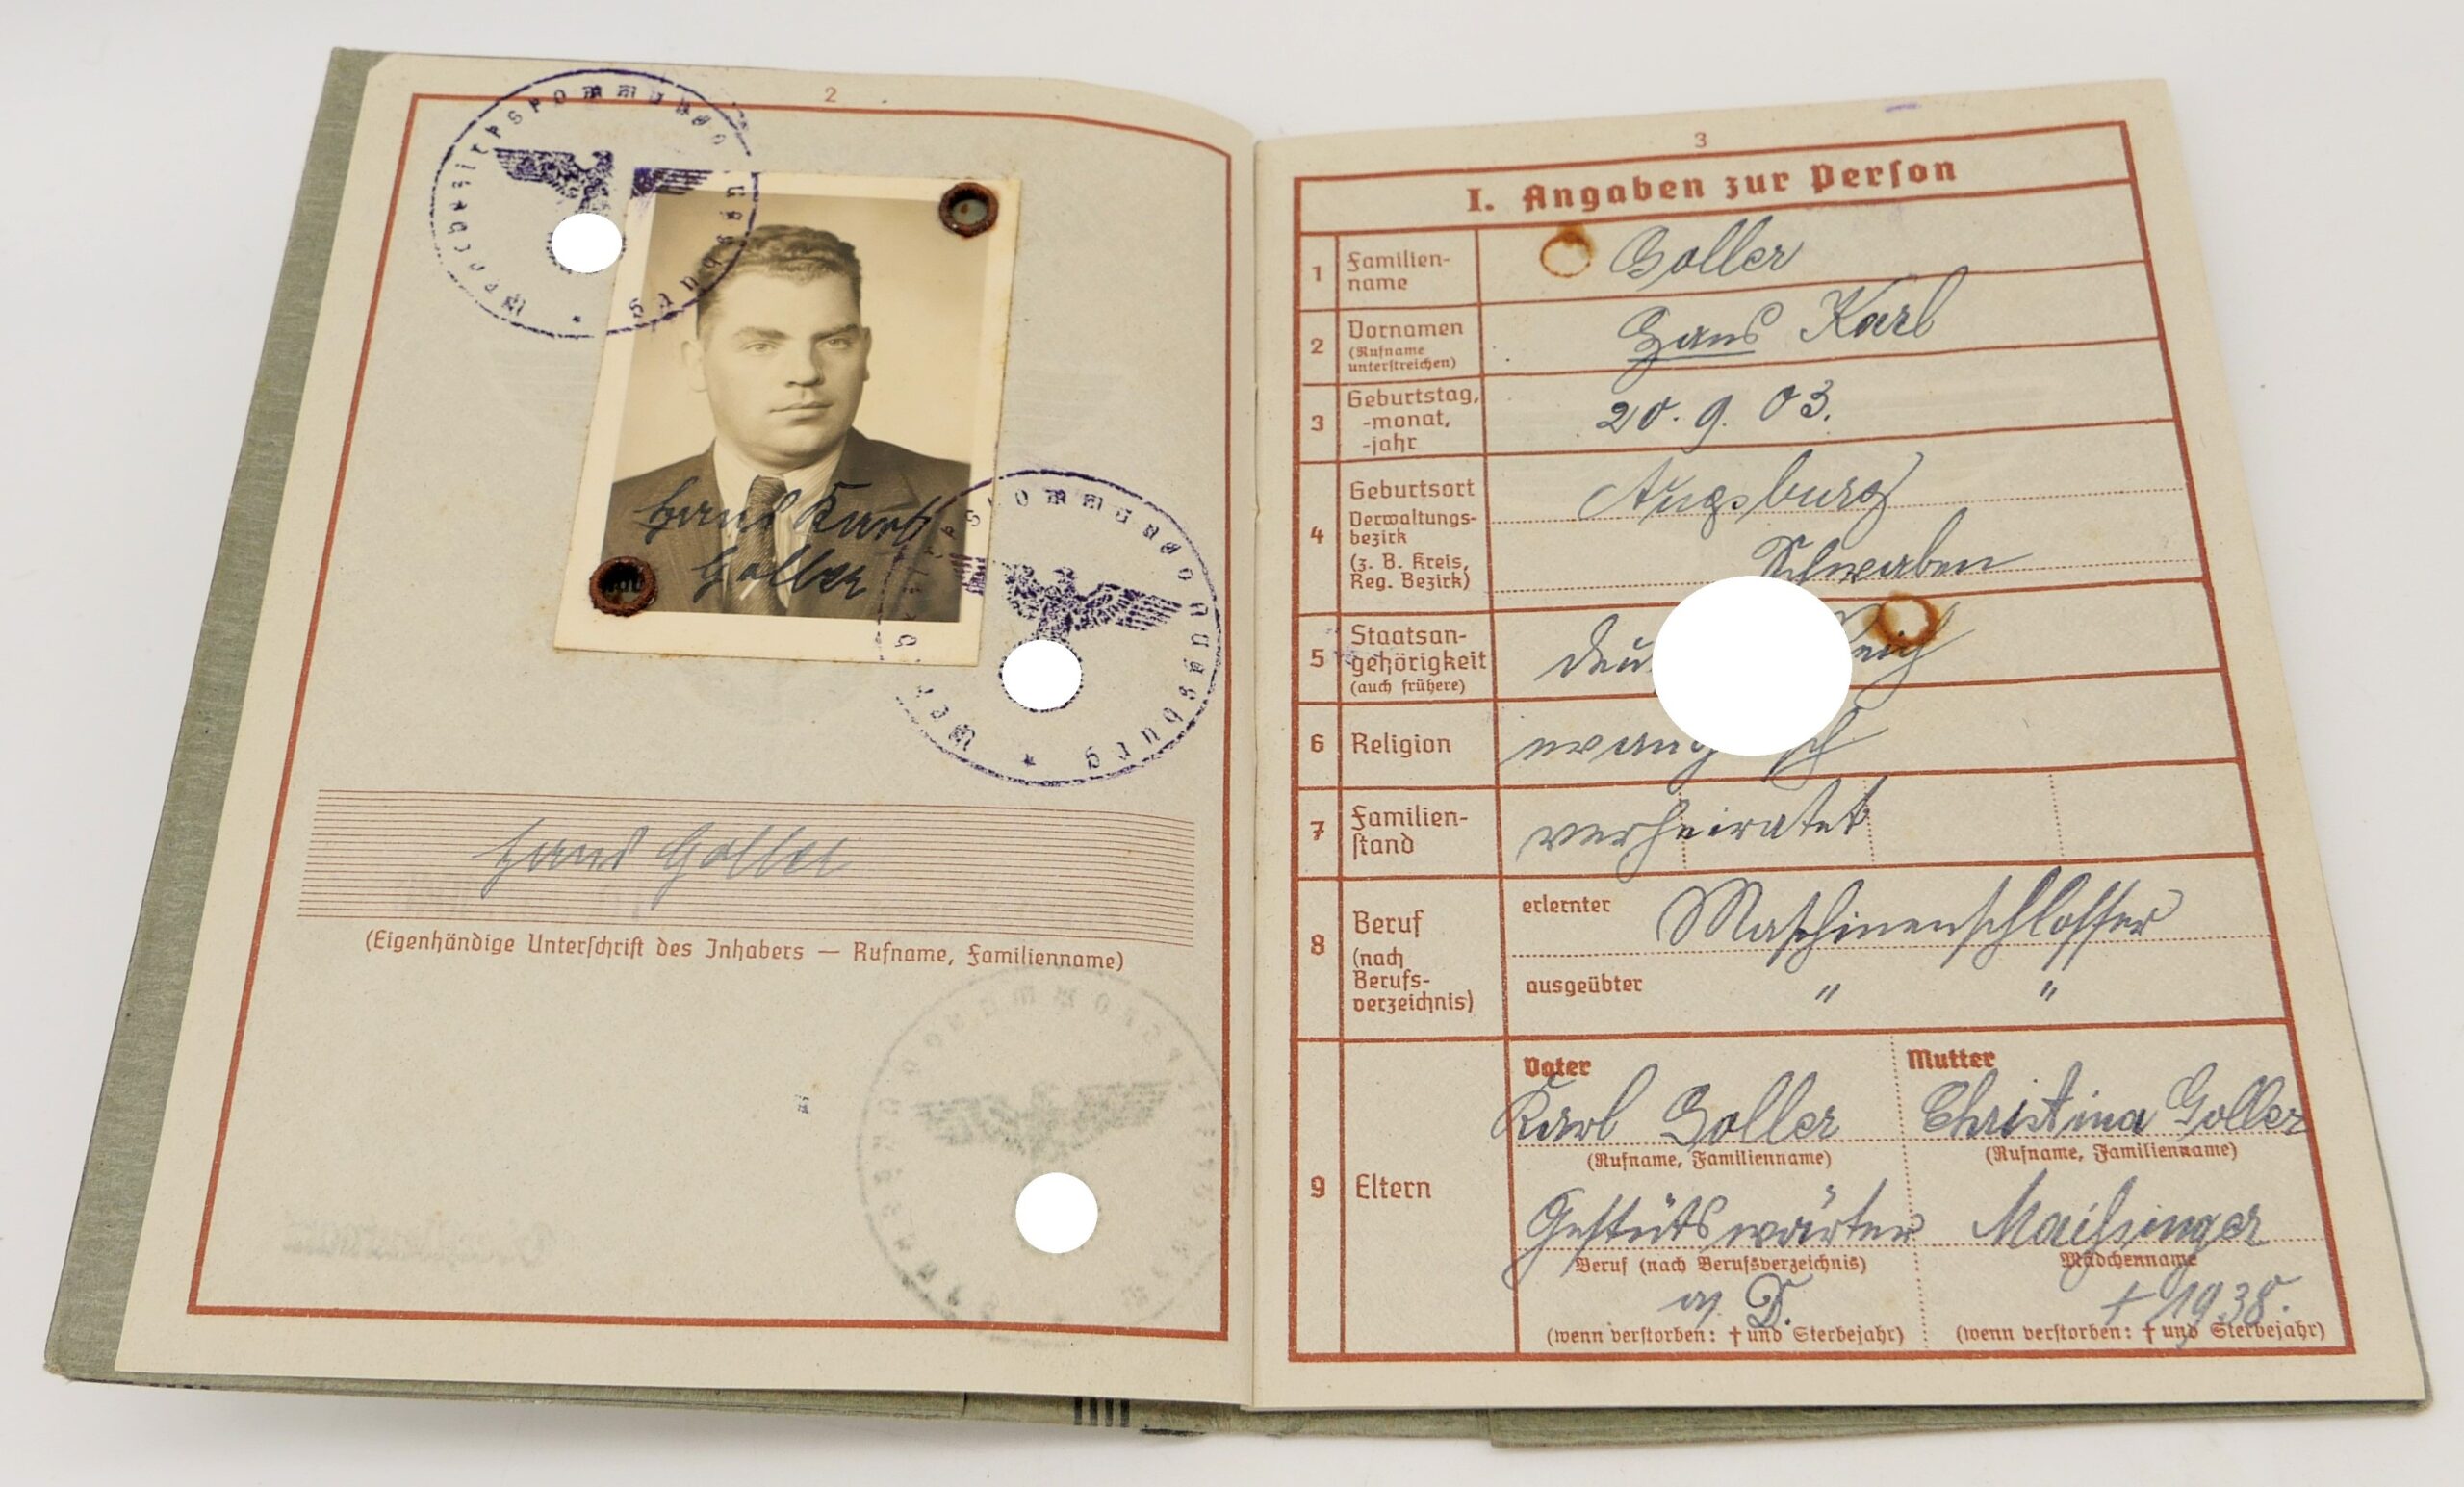 2
Wehrbezirkskommando Augsburg *
Hans Karl
Goller
Wehrbezirkskommando Augsburg *
Hans Goller
(Eigenhändige Unterſchrift des Inhabers — Rufname, Familienname)
3
I. Angaben zur Perſon
1 Familien-
name
Goller
2 Vornamen
(Rufname
unterſtreichen)
Hans Karl
3 Geburtstag,
-monat,
-jahr
20. 9. 03.
4 Geburtsort
Verwaltungs-
bezirk
(z. B. Kreis,
Reg. Bezirk)
Augsburg
Schwaben
5 Staatsan-
gehörigkeit
(auch frühere)
6 Religion
7 Familien-
ſtand
verheiratet
8 Beruf
(nach
Berufs-
verzeichnis)
erlernter Maschinenschlosser
ausgeübter " "
9 Eltern
Vater
Karl Goller
(Rufname, Familienname)
Gestütswärter
Beruf (nach Berufsverzeichnis)
a. D.
(wenn verſtorben: † und Sterbejahr)
Mutter
Christina Goller
(Rufname, Familienname)
Maihinger
Mädchenname
† 1938.
(wenn verſtorben: † und Sterbejahr)